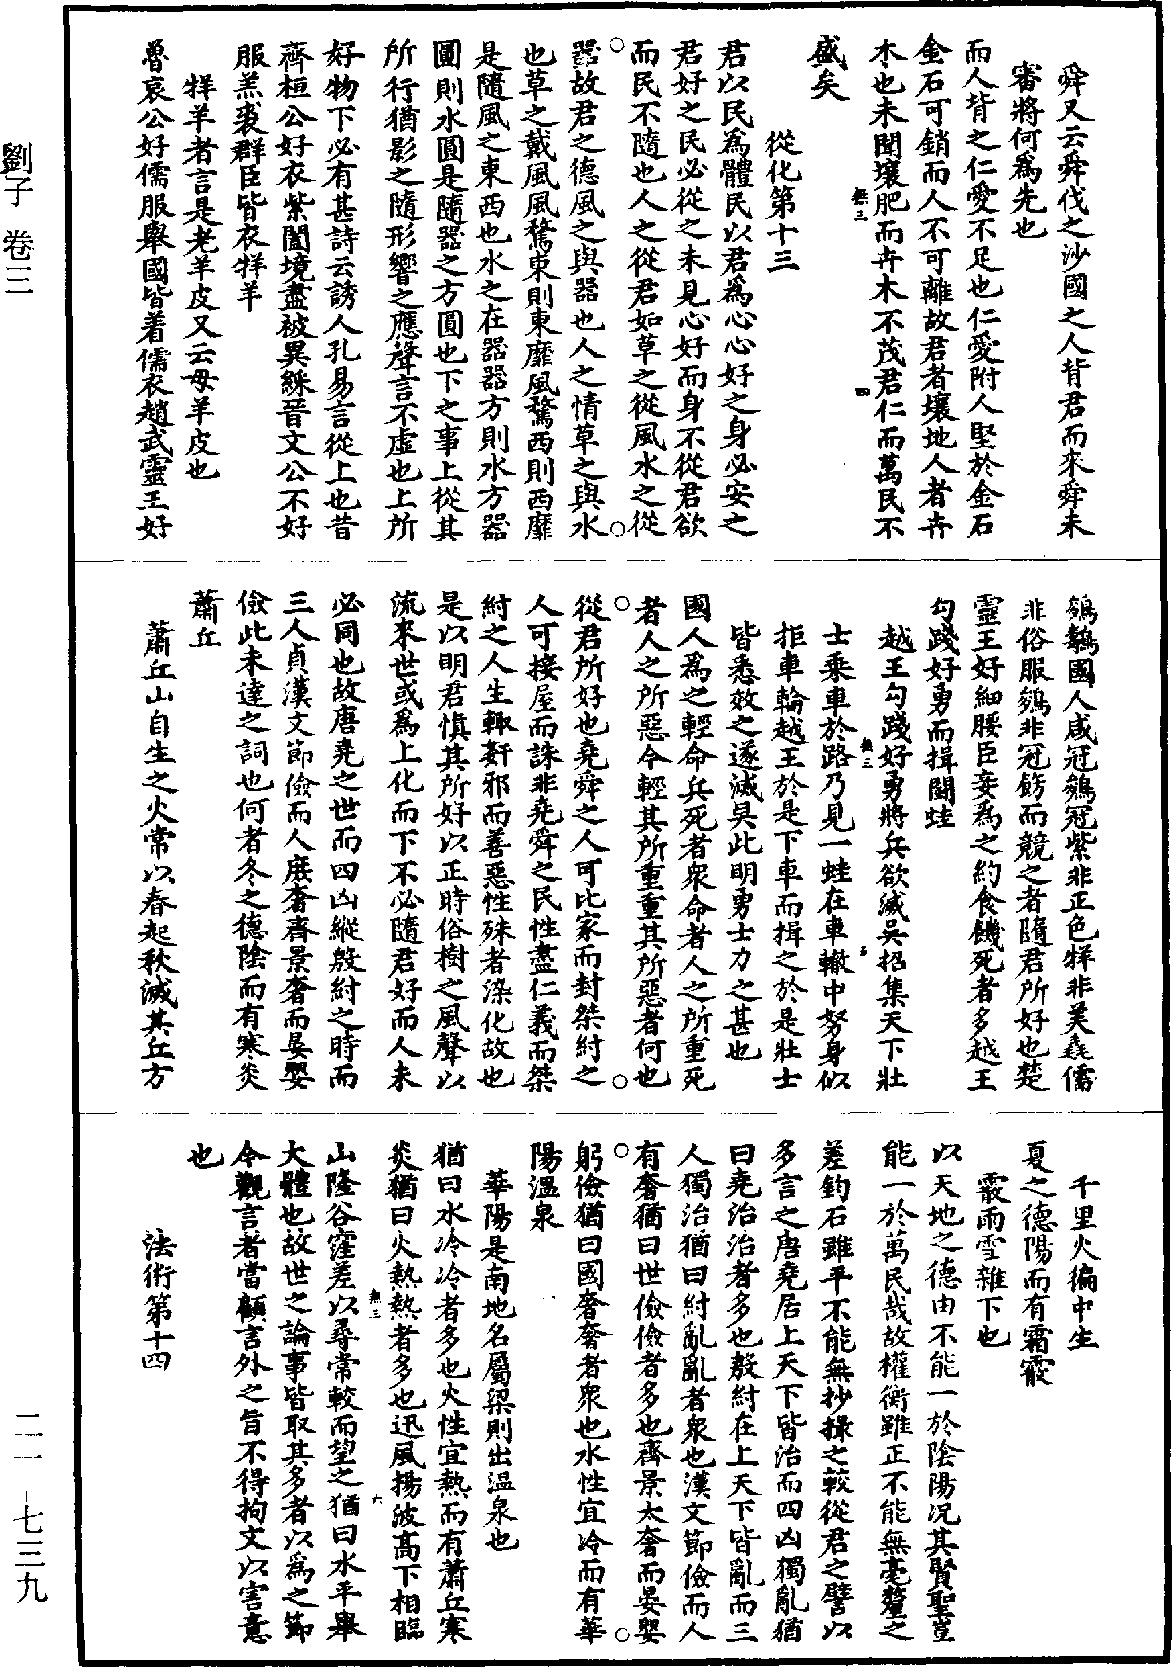 舜又云舜伐之沙國之人背君而來舜未
審將何爲先也
而人背之仁愛不足也仁愛附人堅於金石
金石可銷而人不可離故君者壤地人者卉
木也未聞壤肥而卉木不茂君仁而萬民不
盛矣
從化第十三
君以民爲體民以君爲心心好之身必安之
君好之民必從之未見心好而身不從君欲
而民不隨也人之從君如草之從風水之從
器故君之德風之與器也人之情草之與水
也草之戴風風騖東則東靡風騖西則西靡
是隨風之東西也水之在器器方則水方器
圓則水圓是隨器之方圓也下之事上從其
所行猶影之隨形響之應聲言不虛也上所
好物下必有甚詩云誘人孔易言從上也昔
齊桓公好衣紫闔境盡被異綵晉文公不好
服羔裘群臣皆衣牂羊
牂羊者言是老羊皮又云母羊皮也
魯哀公好儒服舉國皆着儒衣趙武靈王好
鵕鸃國人咸冠鵕冠紫非正色牂非美毳儒
非俗服鵕非冠餝而競之者隨君所好也楚
靈王好細腰臣妾爲之約食餓死者多越王
勾踐好勇而揖鬪蛙
越王勾踐好勇將兵欲滅吳招集天下壯
士乘車於路乃見一蛙在車轍中努身似
拒車輪越王於是下車而揖之於是壯士
皆悉效之遂滅吳此明勇士力之甚也
國人爲之輕命兵死者衆命者人之所重死
者人之所惡今輕其所重重其所惡者何也
從君所好也堯舜之人可比家而封桀紂之
人可接屋而誅非堯舜之民性盡仁義而桀
紂之人生輙姧邪而善惡性殊者染化故也
是以明君慎其所好以正時俗樹之風聲以
流來世或爲上化而下不必隨君好而人未
必同也故唐堯之世而四凶縱殷紂之時而
三人貞漢文節儉而人庶奢齊景奢而晏嬰
儉此未達之詞也何者冬之德陰而有寒炎
蕭丘
蕭丘山自生之火常以春起秋滅其丘方
千里火徧中生
夏之德陽而有霜霰
霰雨雪雜下也
以天地之德由不能一於陰陽況其賢聖豈
能一於萬民哉故權衡雖正不能無毫釐之
差鈞石雖平不能無抄撮之較從君之譬以
多言之唐堯居上天下皆治而四凶獨亂猶
曰堯治治者多也殷紂在上天下皆亂而三
人獨治猶曰紂亂亂者衆也漢文節儉而人
有奢猶曰世儉儉者多也齊景太奢而晏嬰
躬儉猶曰國奢奢者衆也水性宜冷而有華
陽溫泉
華陽是南地名屬梁則出溫泉也
猶曰水冷冷者多也火性宜熱而有蕭丘寒
炎猶曰火熱熱者多也迅風揚波高下相臨
山隆谷窪差以尋常較而望之猶曰水平舉
大體也故世之論事皆取其多者以爲之節
今觀言者當顧言外之旨不得拘文以害意
也
法術第十四
劉子 卷三
二一－七三九
無三
四
無三
五
無三
六